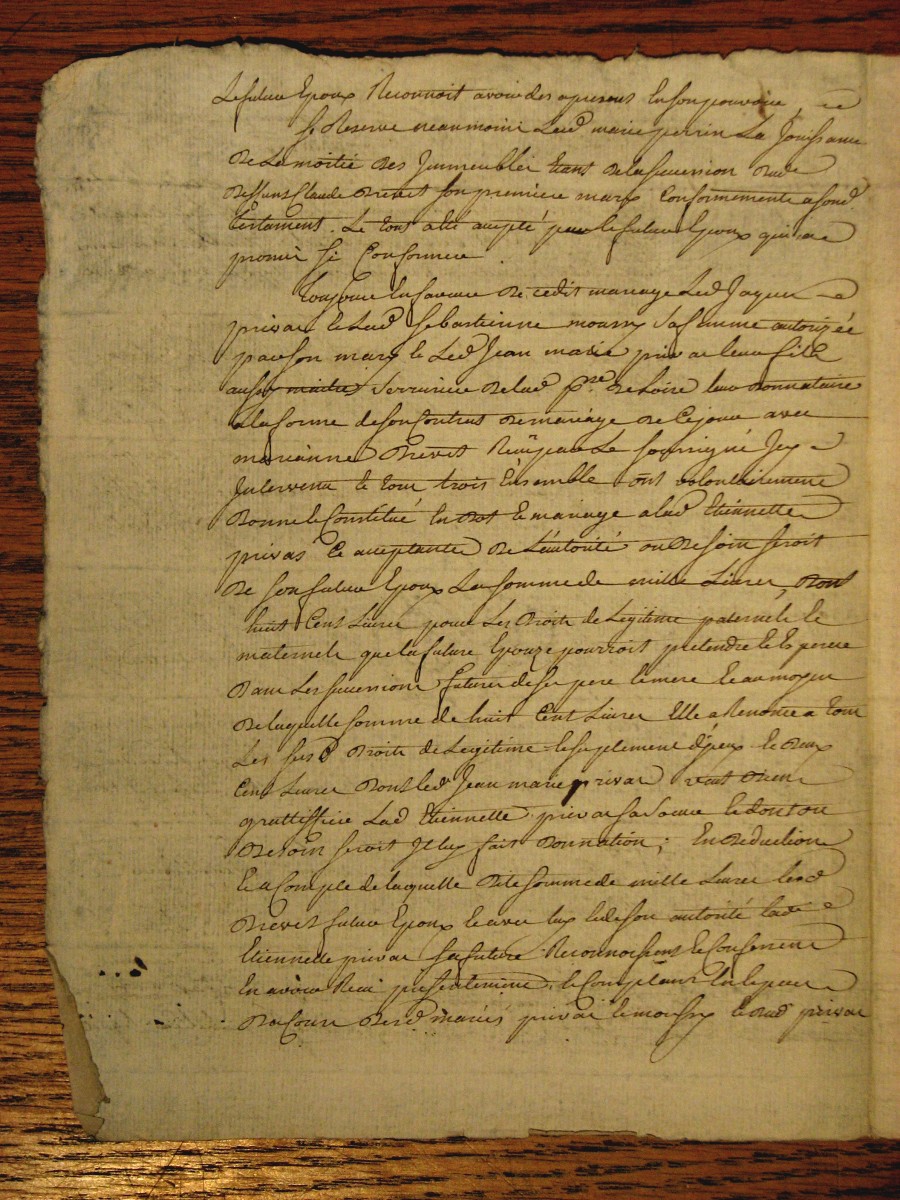 Le future Epoux Reconnoit avoir des apresent En son pouvoir,
Se Reserve neanmoins Lad marie perrin La Jouissance
De La moitié Des Jmmeubles Etant De la succession Dud
Deffunt Claude Drevet son premiere mary Conformement a sond
Testament. Le tout a été accepté par le future Epoux qui a
promis Si Conformer.
En faveur De cedit mariage Led Jaques
privas et Lad Sebastienne moussy Sa femme autorizée
par son mary et Led Jean marie privas leur fils
aussy maitre Serrurier De lad p.re De Loire leur Donnataire
a la forme de son Contrat De mariage De Ce jour avec
marianne Drevet Reçu par Le soussigné Jcy
Jntervenu et tous trois Ensemble ont volontairement
Donné et Constitué En Dot et mariage a lad Etiennette
privas Ce acceptante De L'autorité ou De soin seroit
De son future Epoux La somme de mille Livres, Dont
huit Cent Livres pour Les Droits de Legitime paternels et
maternels que la future Epouze pourroit pretendre et Esperer
Dans Les successions futures de ses pere et mere et au moyen
De laquelle somme de huit Cent Livres Elle a Renoncé a tous
Les susd Droits de Legitime et suplement d'iceux et Deux
Cent Livres Dont led Jean marie privas veut Bien
grattiffier Lad Etiennette privas sa soeur et dont ou
De soin seroit Jl luy fait Donnation; En Deduction
et a Compte de laquelle Dite somme de mille Livres led
Drevet future Epoux et avec luy et de son autorité lad
Etiennette privas sa future Reconnoissent et Confessent
En avoir Reçu presentement, et Comptant En Espece
De Cours Desd mariés privas et moussy et Dud privas